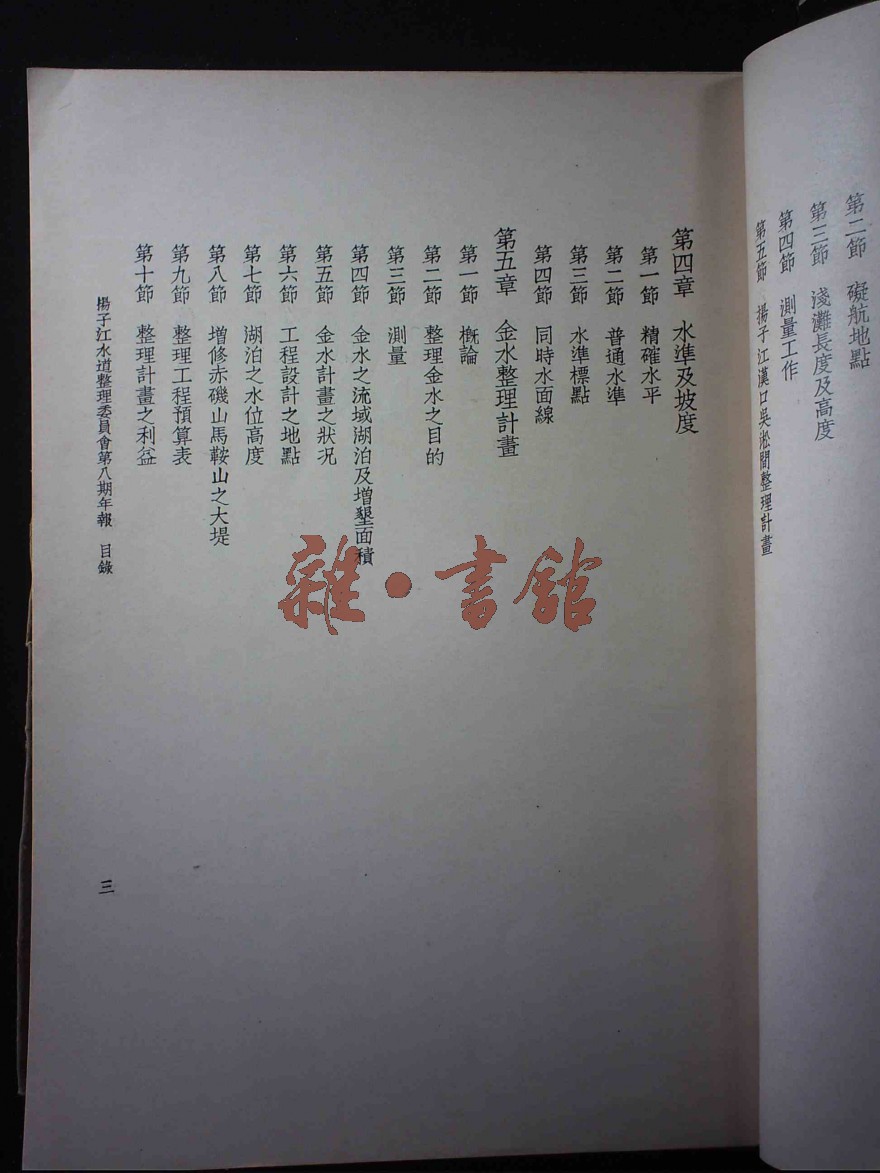 第二節　礙航地點
第三節　淺灘長度及高度
第四節　測量工作
第五節　揚子江漢口吳淞間整理計畫
第四章　水準及坡度
第一節　精確水平
第二節　普通水準
第三節　水準標點
第四節　同時水面線
第五章　金水整理計畫
第一節　概論
第二節　整理金水之目的
第三節　測量
第四節　金水之流域湖泊及增墾面積
第五節　金水計畫之狀況
第六節　工程設計之地點
第七節　湖泊之水位高度
第八節　增修赤磯山馬鞍山之大堤
第九節　整理工程預算表
第十節　整理計畫之利益
揚子江水道整理委員會第八期年報　目錄
三
雜·書館